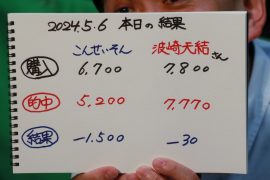 2024.5.6 本日の結果
こんせいそん 波崎天結さん
購入 6,700 7,800
的中 5,200 7,770
結果 -1,500 -30